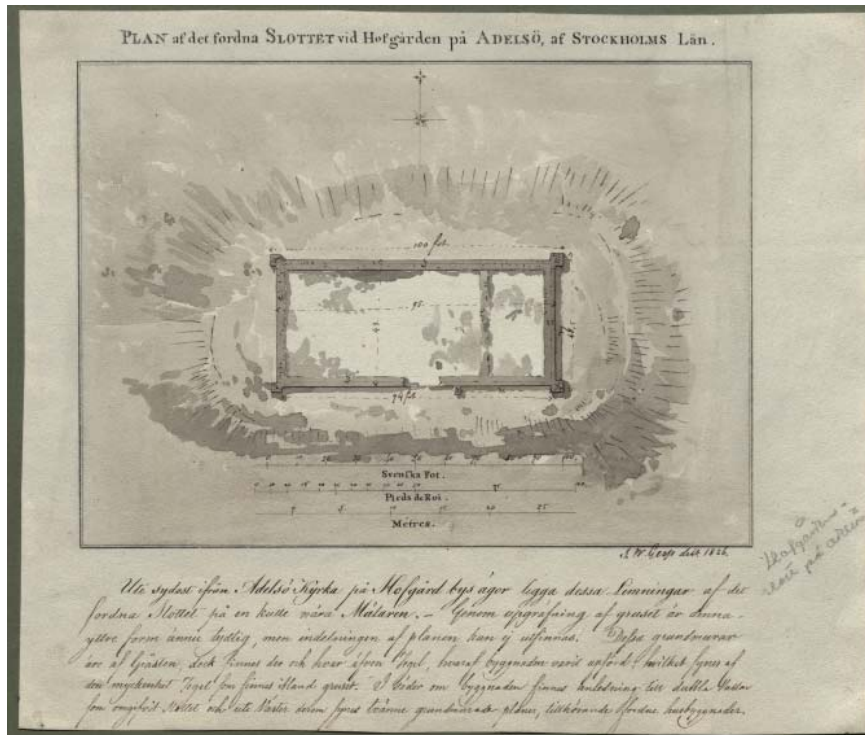 PLAN af det fordna SLOTTET vid Hofgården på ADELSÖ, af STOCKHOLMS Län.
100 fot.
95.
94 fot
Svenska Fot.
Pieds de Roi.
Métres.
1826.
Ute sydost ifrån Adelsö Kyrka på Hofgård bys ägor ligga dessa Lemningar af det
fordna Slottet på en kulle nära Mälaren. – Genom upgräfning af gruset är denna
yttre form ännu tydlig, men indelningen af planen kan ej utfinnas. Dessa grundmurar
äro af Gråsten, dock finnes der och hvar äfven Tegel, hvaraf byggnaden varit upförd, hvilket synes af
den myckenhet Tegel som finnes ibland gruset. I Söder om byggnaden finnes anledning till dubbla Vallar
som omgifvit Slottet och ute Väster derom synes tvänne grundmurade planer, tillhörande fordna husbyggnader.
Hofgården
slott på Adelsö